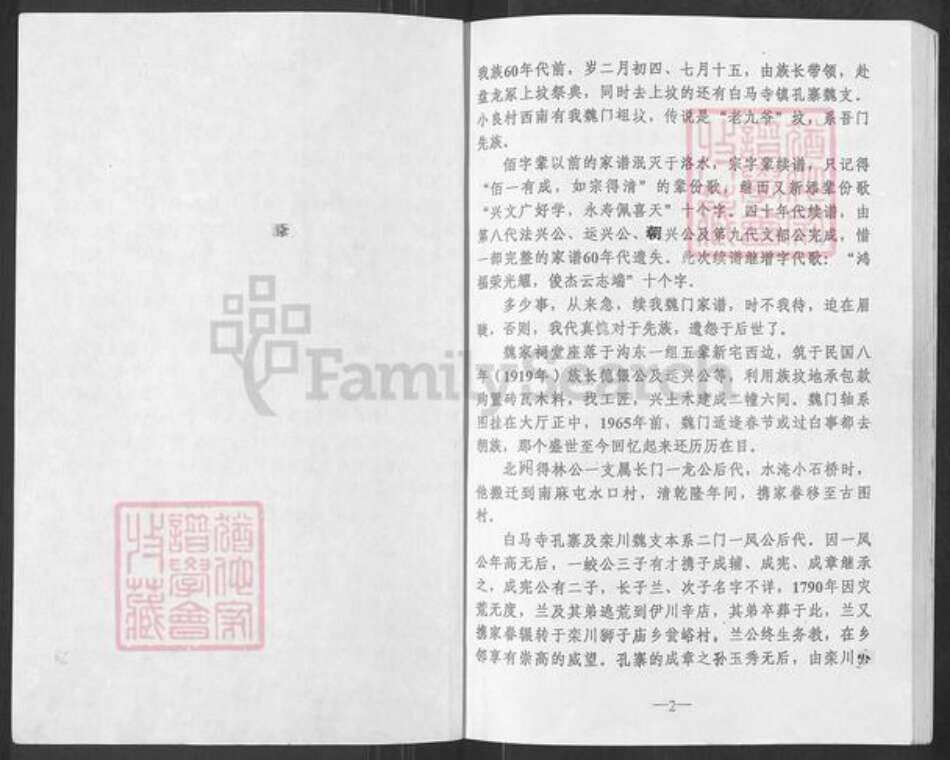 我族60年代前，岁二月初四、七月十五，由族长带领，赴
盘龙冢上坟祭典，同时去上坟的还有白马寺镇孔寨魏支．
小良村西南有我魏门祖坟，传说是“老九爷”坟，系吾门
先族．
佰字辈以前的家谱泯灭于洛水，宗字辈续谱，只记得
“佰一有成，如宗得清”的辈份歌，继而又新添辈份歌
“兴文广好学，永寿佩喜天”十个字．四十年代续谱，由
第八代法兴公、运兴公、朝兴公及第九代文郁公完成，惜
一部完整的家谱60年代遗失．此次续谱继增字代歌：“鸿
福荣光耀，俊杰云志端”十个字．
多少事，从来急，续我魏门家谱，时不我待，迫在眉
睫，否则，我代真愧对于先族，遗怨于后世了．
魏家祠堂座落于沟东一组五辈新宅西边，筑于民国八
年（1919年）族长德银公及运兴公等，利用族坟地承包款
购置砖瓦木料，我工匠，兴土木建成二幢六间．魏门轴系
图挂在大厅正中，1965年前，魏门适逢春节或过白事都去
朝族，那个盛世至今回忆起来还历历在目．
北网得林公一支属长门一龙公后代，水淹小石桥时，
他搬迁到南麻屯水口村，清乾隆年间，携家眷移至古图
村．
白马寺孔寨及栾川魏支本系二门一凤公后代．因一凤
公年高无后，一蛟公三子有才携子成辅、成宪、成章继承
之，成宪公有二子，长子兰、次子名字不详，1790年因灾
荒无度，兰及其弟逃荒到伊川辛店，其弟卒葬于此，兰又
携家眷辗转于栾川狮子庙乡瓮峪村，兰公终生务教，在乡
邻享有崇高的威望．孔寨的成章之孙玉秀无后，由栾川
—2—
FamilySearch
譜學會
收藏